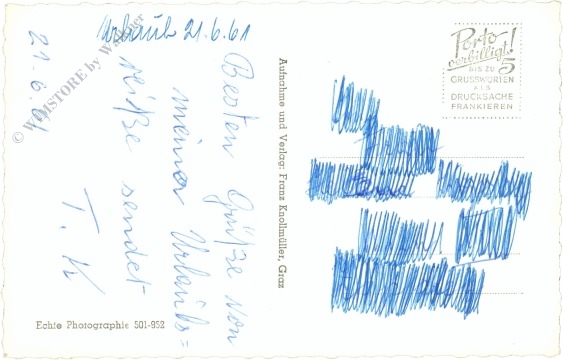 Urlaub 21.6.61
21.6.61
Besten Grüße von
meiner Urlaubs=
reiße sendet
T. K
© WIMSTORE by Wagner
Aufnahme und Verlag: Franz Knollmüller, Graz
Porto
verbilligt!
BIS ZU 5
GRUSSWORTEN
ALS
DRUCKSACHE
FRANKIEREN
Echte Photographie 501-952